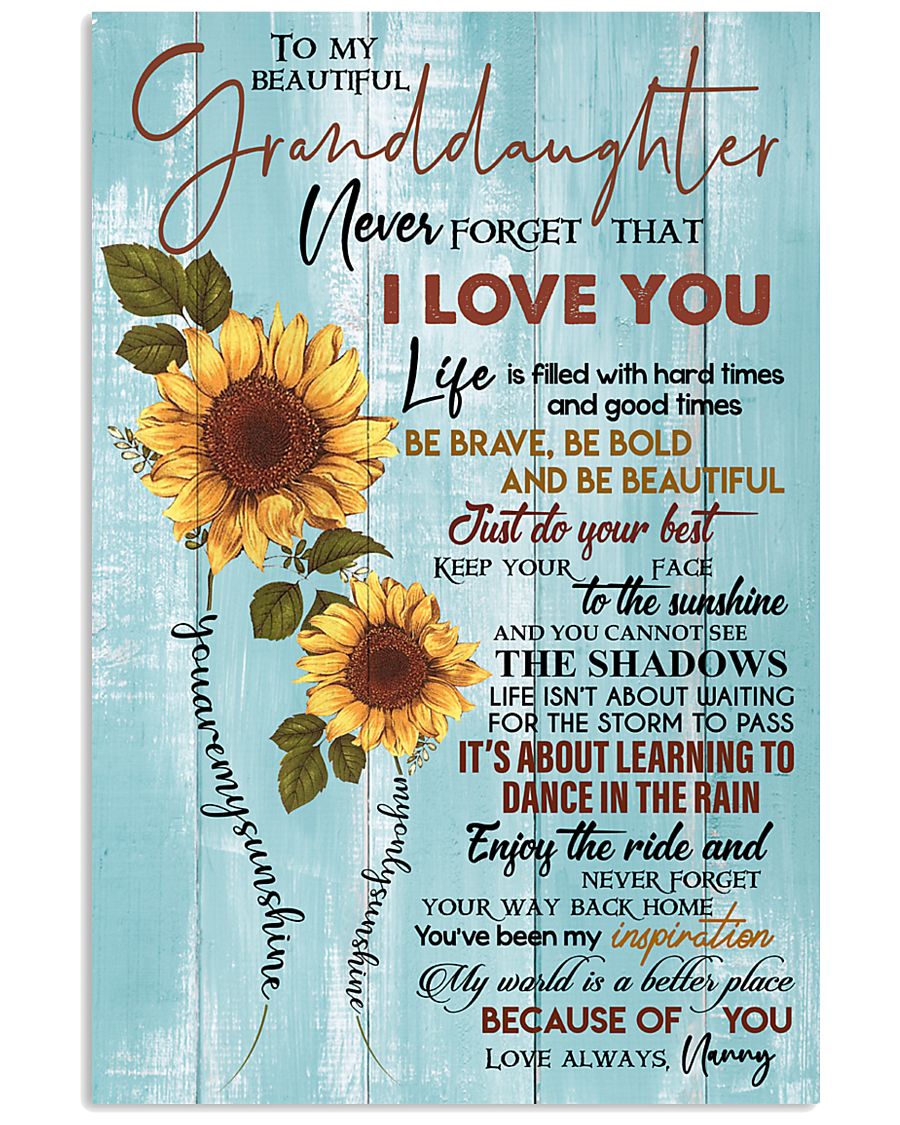 TO MY
BEAUTIFUL
Granddaughter
Never FORGET THAT
I LOVE YOU
Life is filled with hard times
and good times
BE BRAVE, BE BOLD
AND BE BEAUTIFUL
Just do your best
KEEP YOUR FACE
to the sunshine
AND YOU CANNOT SEE
THE SHADOWS
LIFE ISN'T ABOUT WAITING
FOR THE STORM TO PASS
IT'S ABOUT LEARNING TO
DANCE IN THE RAIN
Enjoy the ride and
NEVER FORGET
YOUR WAY BACK HOME
You've been my inspiration
My world is a better place
BECAUSE OF YOU
LOVE ALWAYS, Nanny
youaremysunshine
myonlysunshine